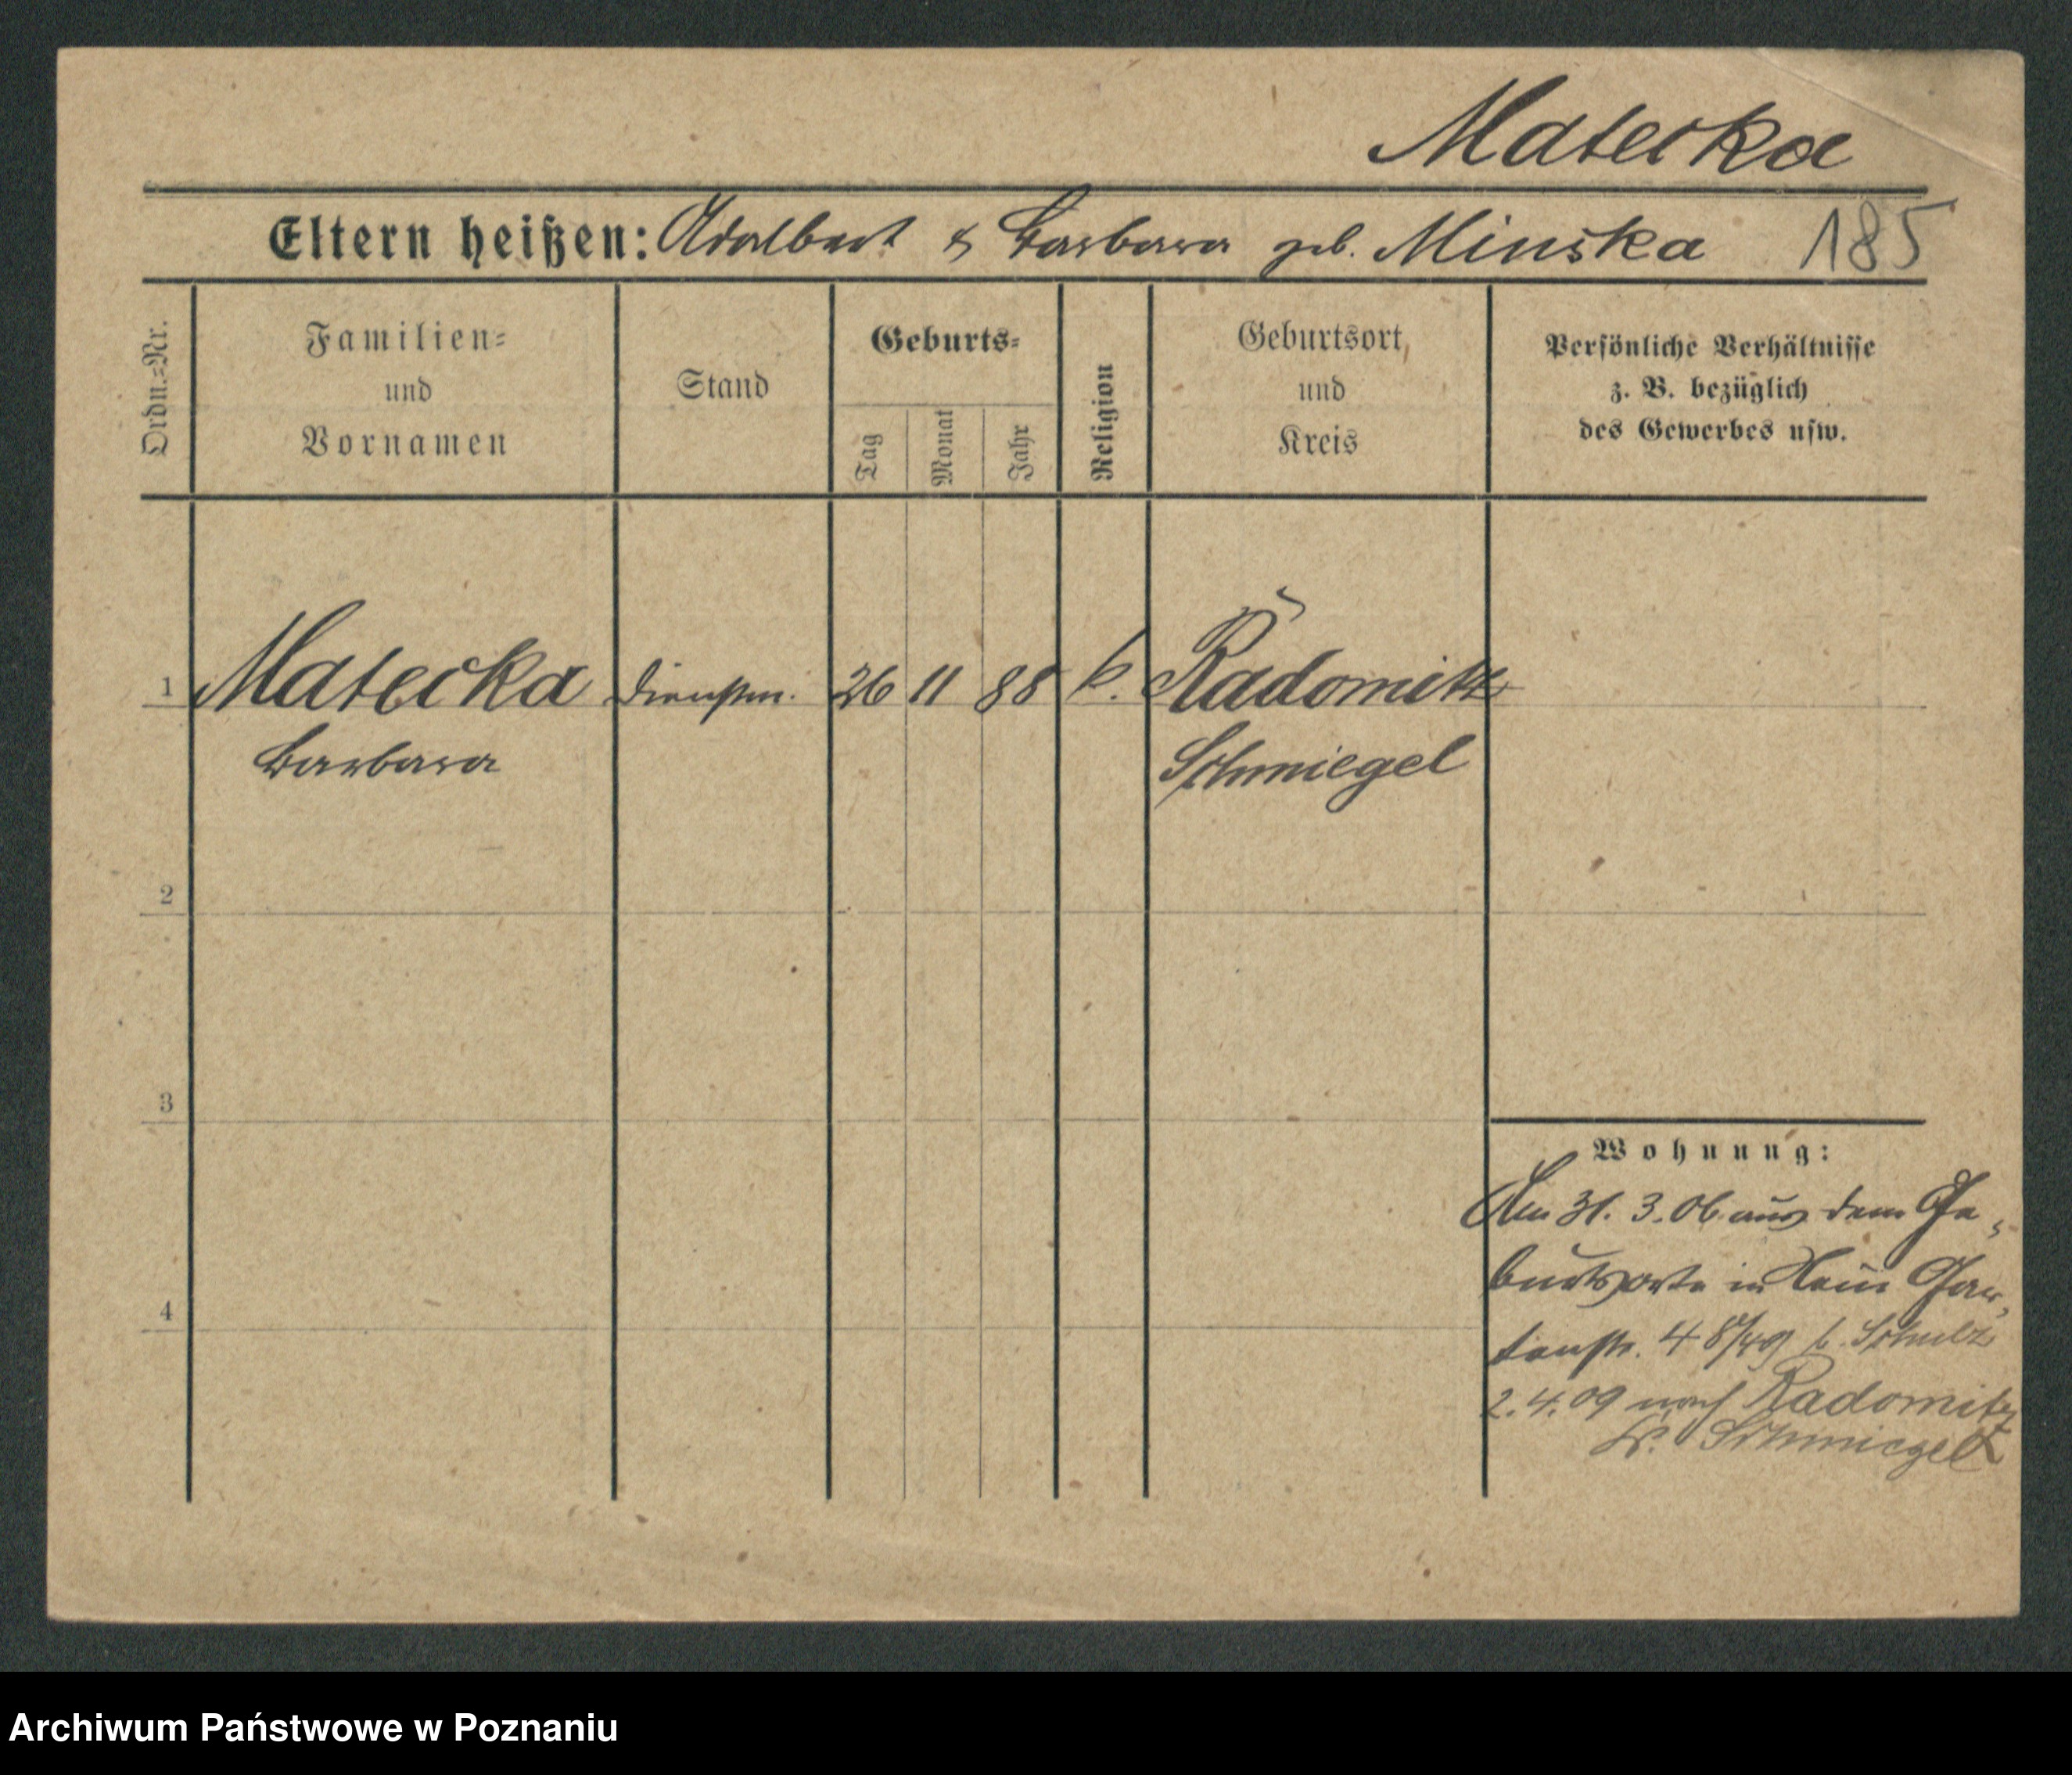 Matecka
Eltern heißen: Adalbert & Barbara geb. Minska 185
Ordn.=Nr.
Familien=
und
Vornamen
Stand
Geburts=
Tag
Monat
Jahr
Religion
Geburtsort
und
Kreis
Persönliche Verhältnisse
z. B. bezüglich
des Gewerbes usw.
1 Matecka Dienstm. 26 11 88 k. Radomitz
Barbara Schmiegel
2
3
Wohnung:
Am 31. 3. 06 aus dem Ge-
burtsorte in Gar-
tenstr. 48/49 b. Schulz
4
2.4.09 nach Radomitz
Kr. Schmiegel
Archiwum Państwowe w Poznaniu